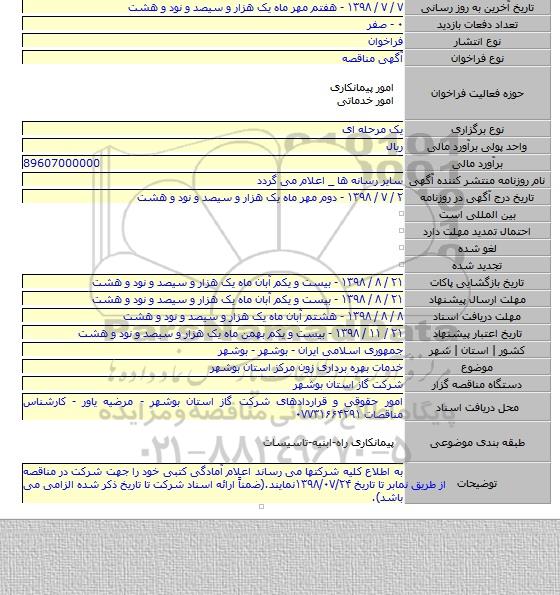 تاریخ آخرین به روز رسانی ۷ / ۷ / ۱۳۹۸ - هفتم مهر ماه یک هزار و سیصد و نود و هشت
تعداد دفعات بازدید ۰ - صفر
نوع انتشار فراخوان
نوع فراخوان آگهی مناقصه
حوزه فعالیت فراخوان امور پیمانکاری
امور خدماتی
نوع برگزاری یک مرحله ای
واحد پولی برآورد مالی ریال
برآورد مالی 89607000000
نام روزنامه منتشر کننده آگهی سایر رسانه ها _ اعلام می گردد
تاریخ درج آگهی در روزنامه ۲ / ۷ / ۱۳۹۸ - دوم مهر ماه یک هزار و سیصد و نود و هشت
بین المللی است
احتمال تمدید مهلت دارد
لغو شده
تجدید شده
تاریخ بازگشایی پاکات ۲۱ / ۸ / ۱۳۹۸ - بیست و یکم آبان ماه یک هزار و سیصد و نود و هشت
مهلت ارسال پیشنهاد ۲۱ / ۸ / ۱۳۹۸ - بیست و یکم آبان ماه یک هزار و سیصد و نود و هشت
مهلت دریافت اسناد ۸ / ۸ / ۱۳۹۸ - هشتم آبان ماه یک هزار و سیصد و نود و هشت
تاریخ اعتبار پیشنهاد ۲۱ / ۱۱ / ۱۳۹۸ - بیست و یکم بهمن ماه یک هزار و سیصد و نود و هشت
کشور | استان | شهر جمهوری اسلامی ایران - بوشهر - بوشهر
موضوع خدمات بهره برداری زون مرکز استان بوشهر
دستگاه مناقصه گزار شرکت گاز استان بوشهر
محل دریافت اسناد امور حقوقی و قراردادهای شرکت گاز استان بوشهر - مرضیه یاور - کارشناس
مناقصات ۰۷۷۳۱۶۶۴۲۹۱
طبقه بندی موضوعی پیمانکاری راه-ابنیه-تاسیسات
توضیحات به اطلاع کلیه شرکتها می رساند اعلام آمادگی کتبی خود را جهت شرکت در مناقصه
از طریق نمابر تا تاریخ ۱۳۹۸/۰۷/۲۴نمایند.(ضمناً ارائه اسناد شرکت تا تاریخ ذکر شده الزامی می
باشد).
۰۲۱-۸۸۳۴۹۶۷۰-۵